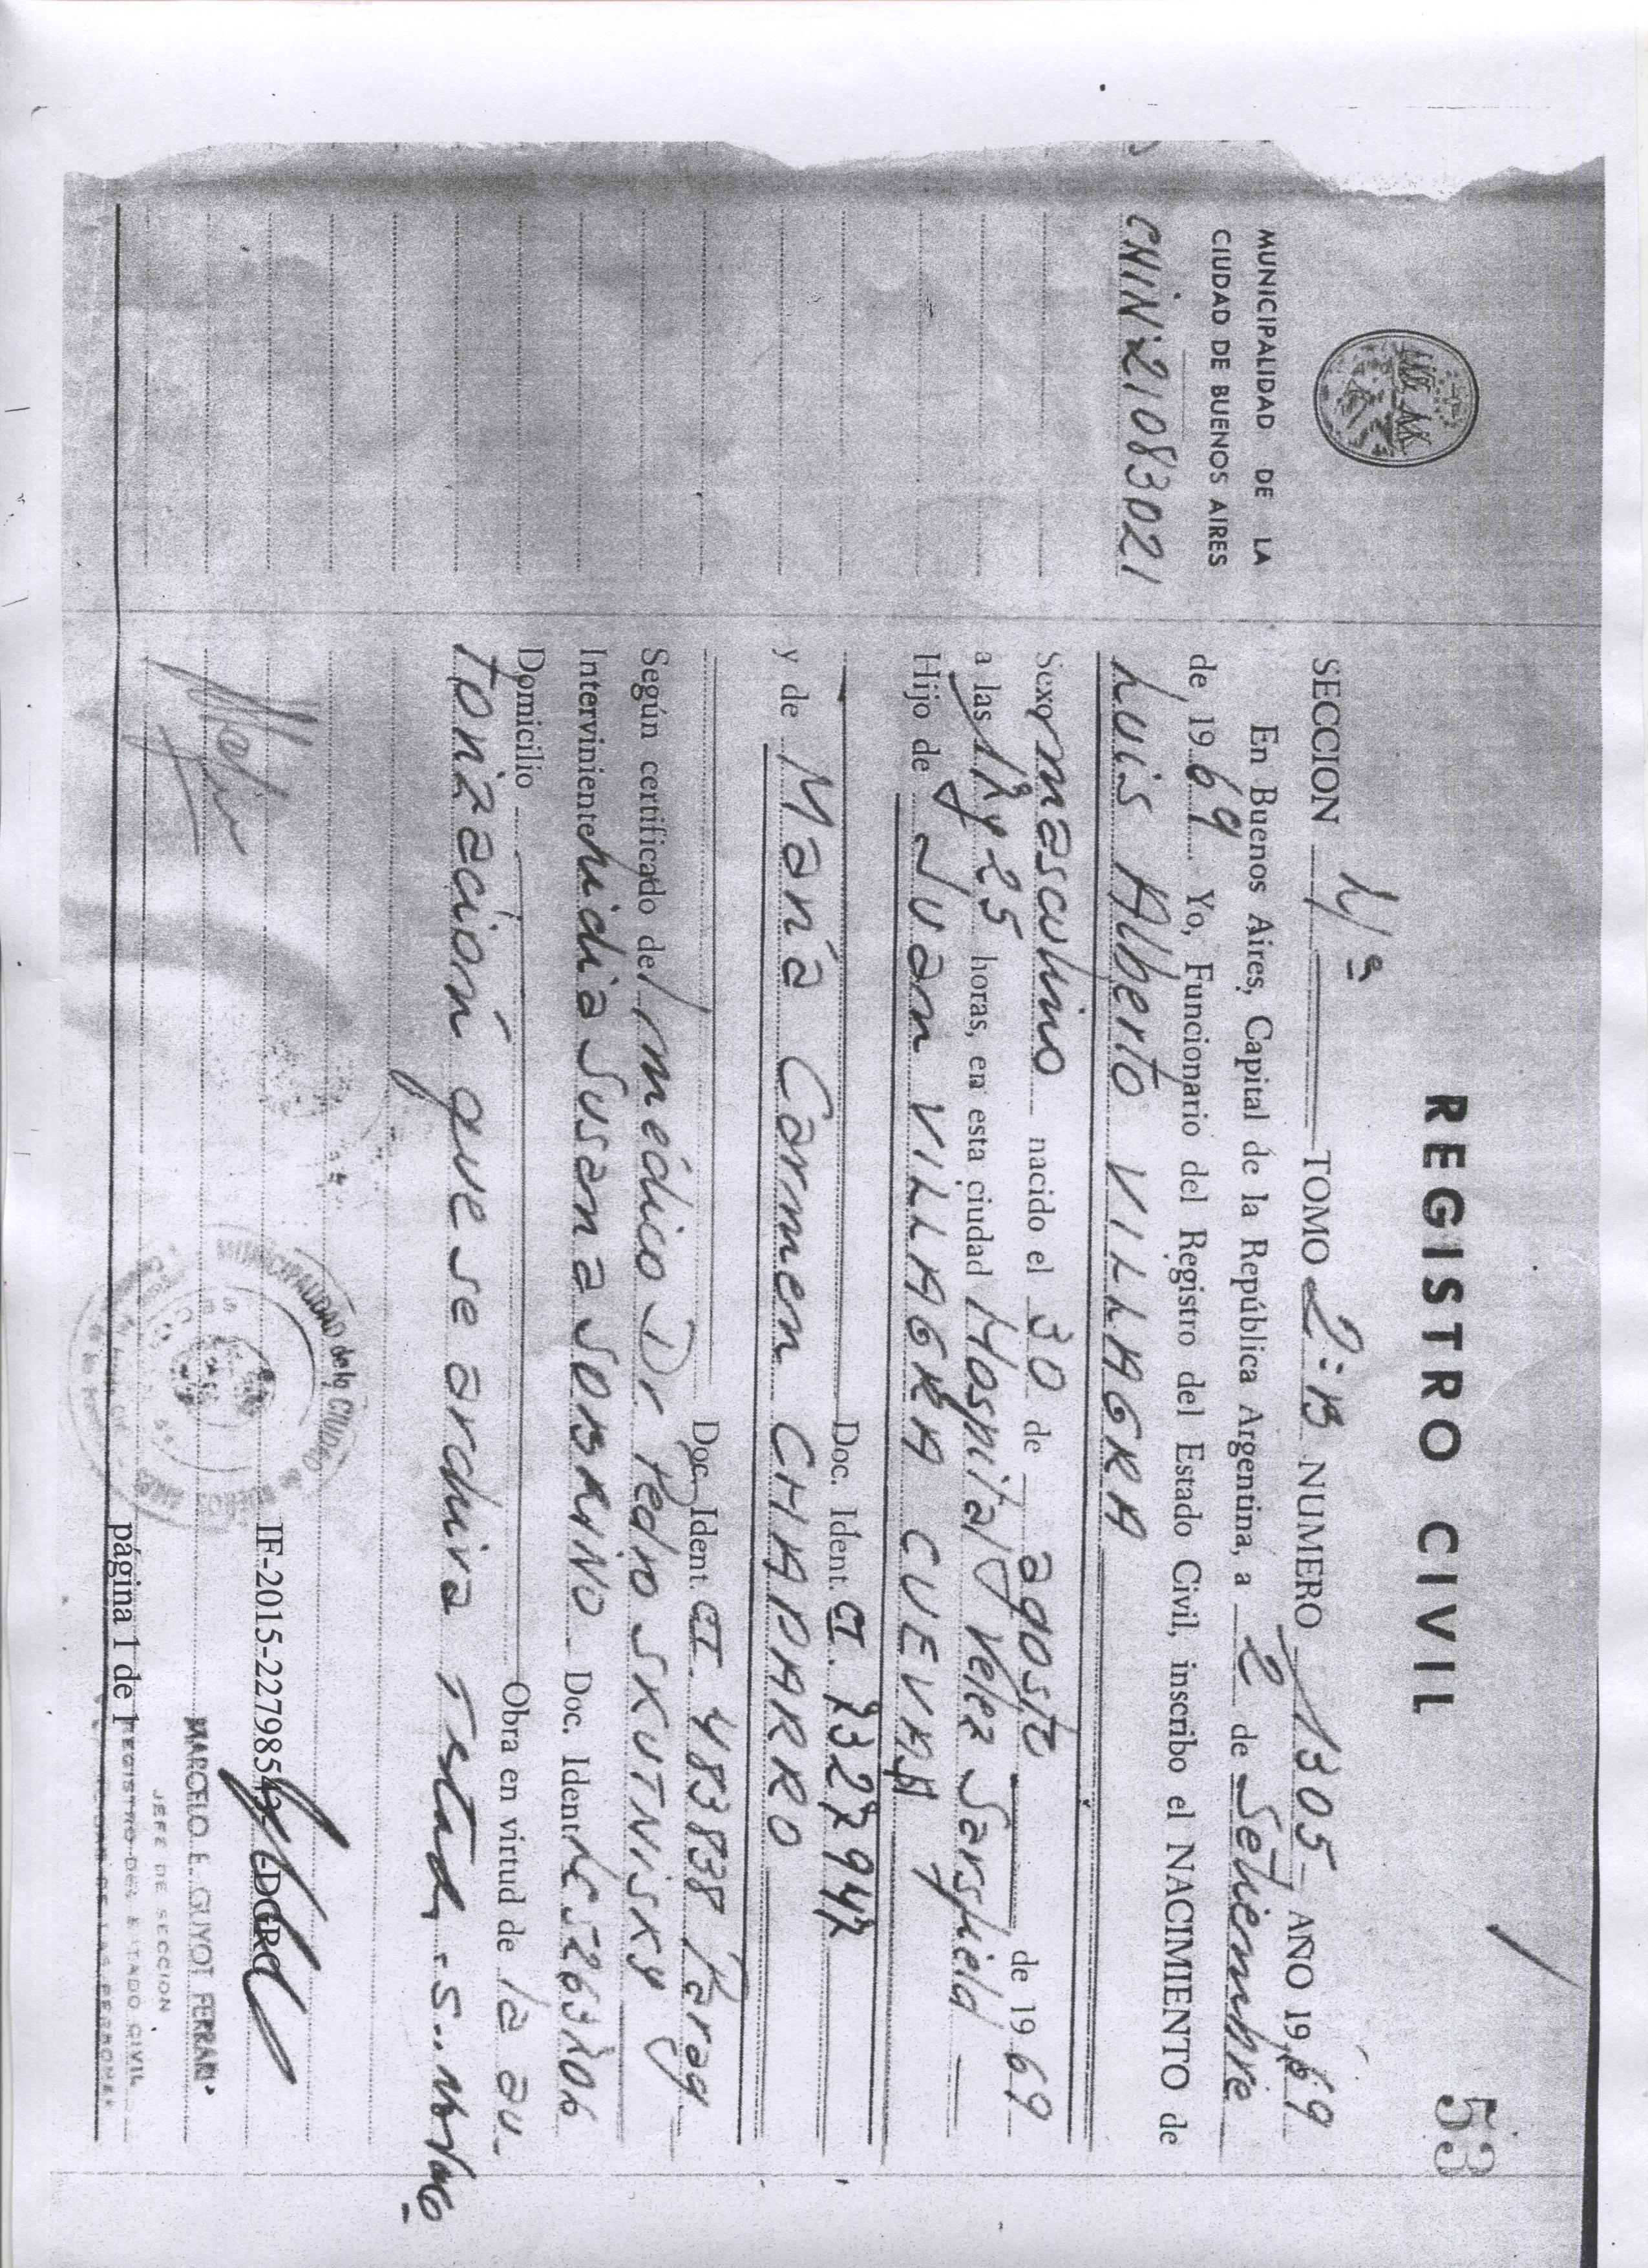 53
REGISTRO CIVIL
MUNICIPALIDAD DE LA
CIUDAD DE BUENOS AIRES
CNIN: 21083021
SECCION 4ª TOMO 2:B NUMERO 1305 AÑO 1969
En Buenos Aires, Capital de la República Argentina, a 2 de Setiembre
de 1969 Yo, Funcionario del Registro del Estado Civil, inscribo el NACIMIENTO de
Luis Alberto VILLAGRA
Sexo masculino nacido el 30 de agosto de 1969
a las 17 y 25 horas, en esta ciudad Hospital Velez Sarsfield
Hijo de Juan VILLAGRA CUEVAS
Doc. Ident. CI. 7327947
y de María Carmen CHAPARRO
Doc. Ident. CI. 483838 Parag
Según certificado del médico Dr. Pedro SKUTNISKY
Interviniente Lidia Susana SOBRINO Doc. Ident. LC 5263706
Domicilio Obra en virtud de la au-
torización que se archiva
MUNICIPALIDAD de la CIUDAD de
IF-2015-2279854 -DGRC
MARCELO E. GUYOT FERRARI
JEFE DE SECCION
REGISTRO DEL ESTADO CIVIL
página 1 de 1